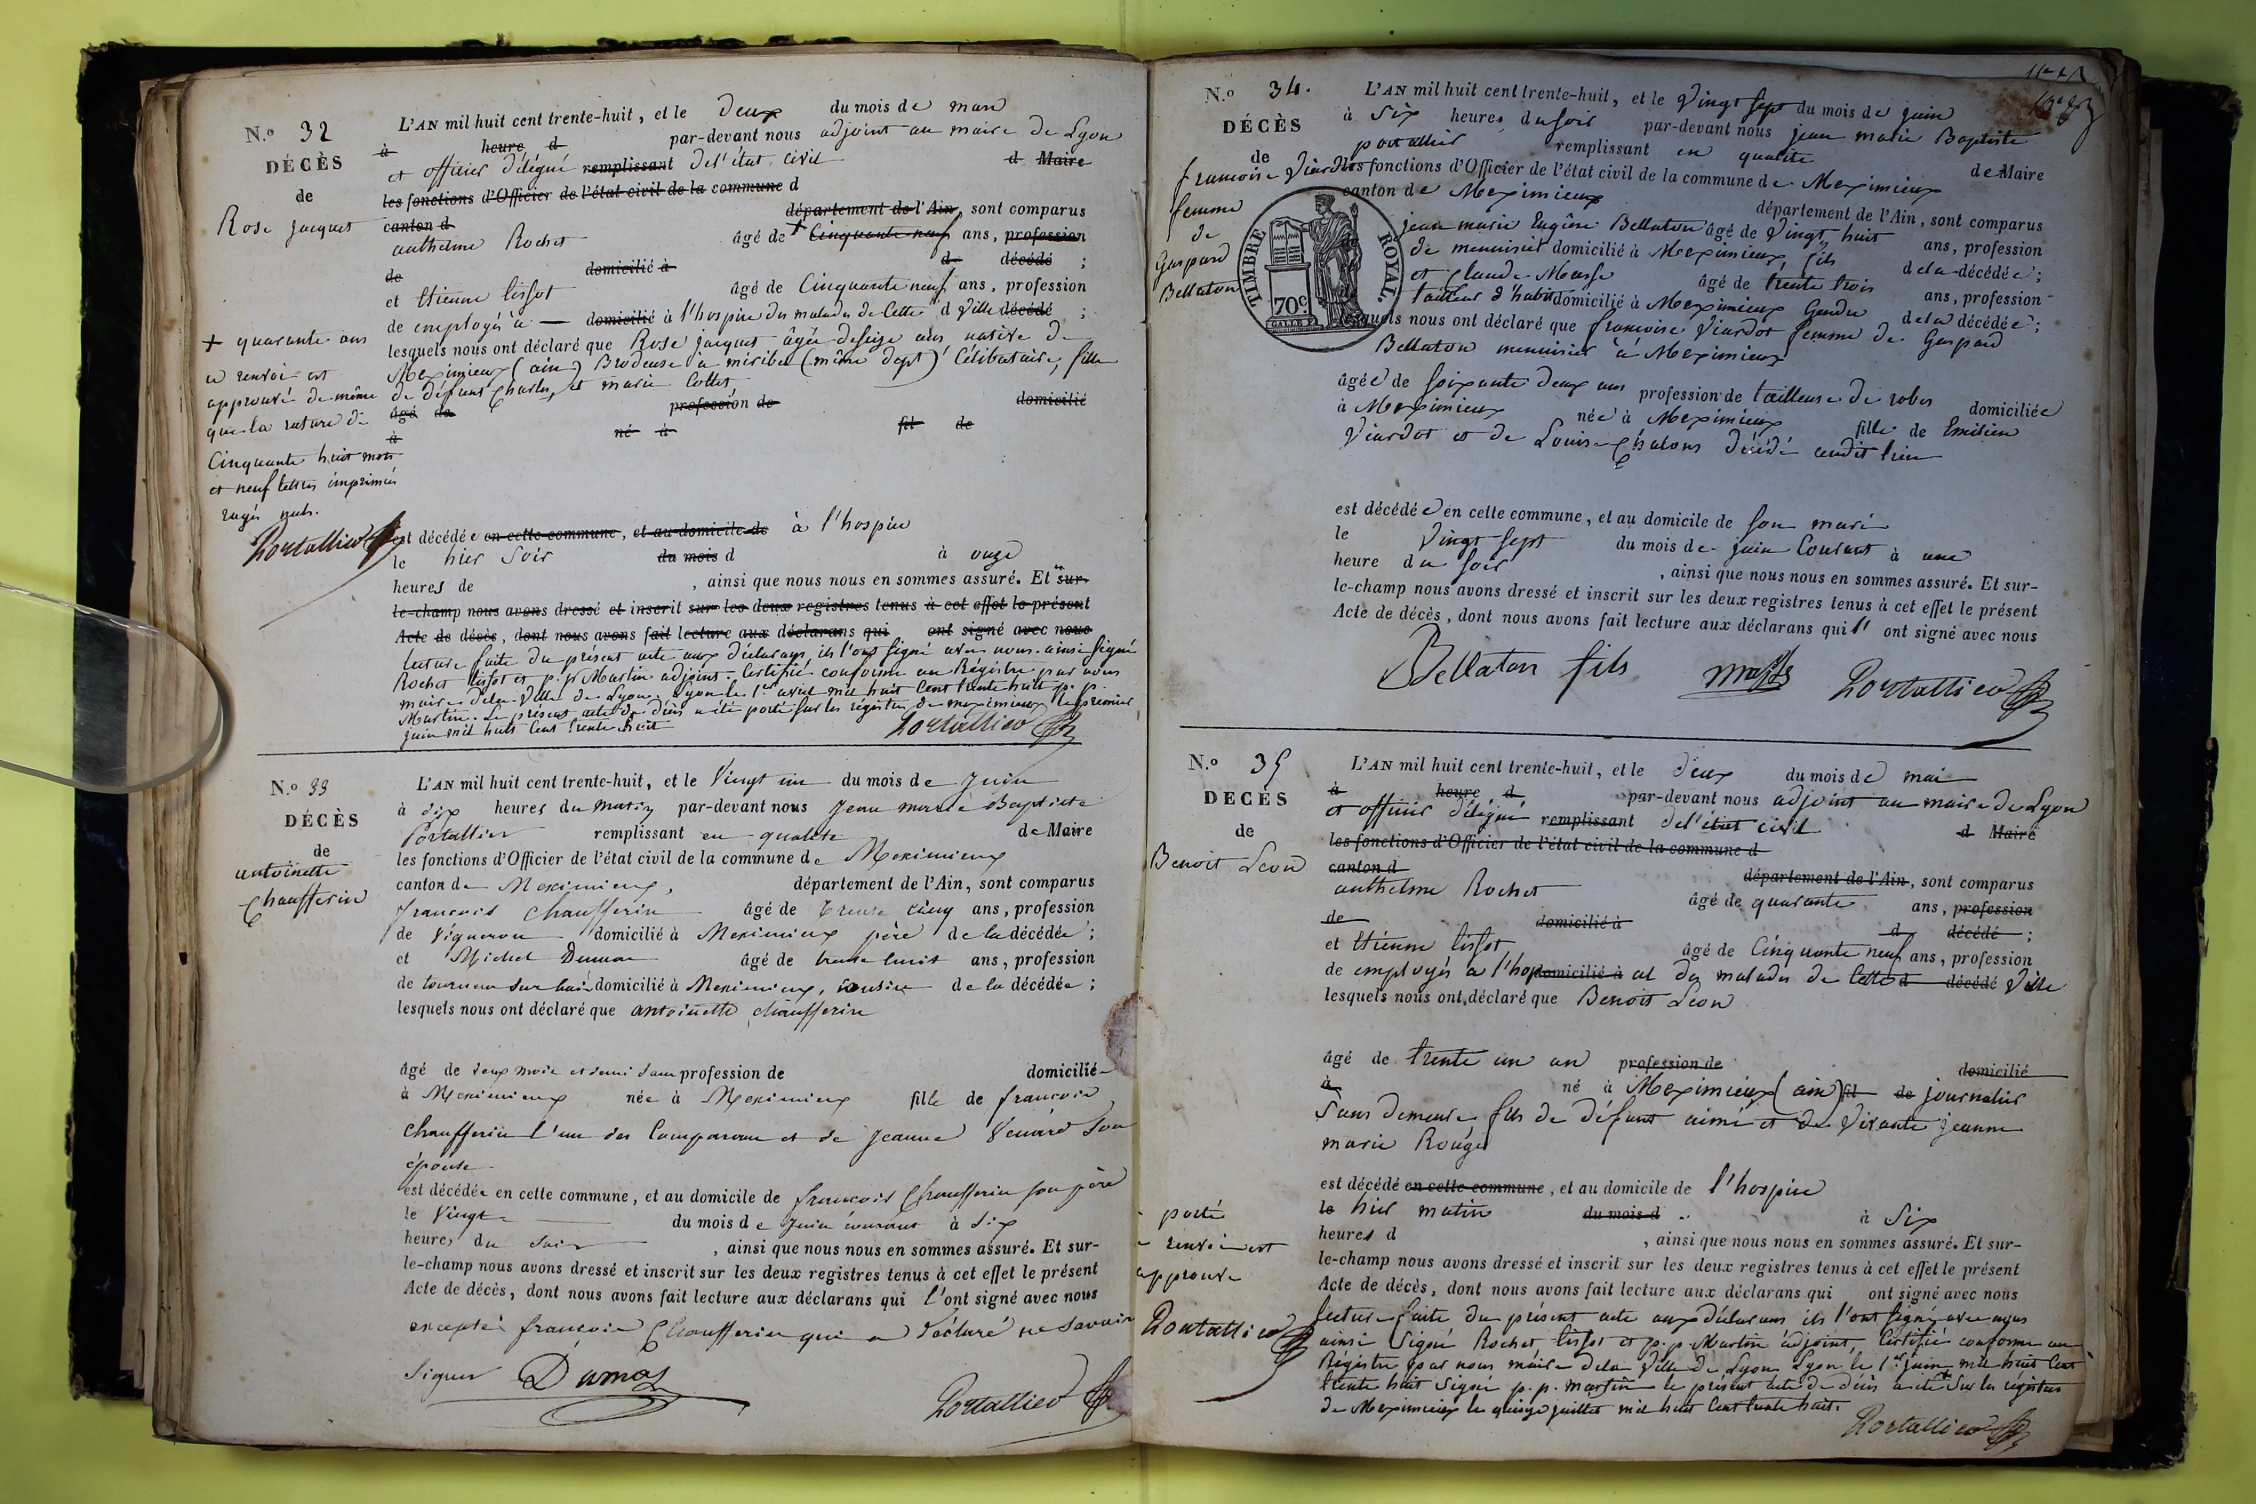 N.o 32
DÉCÈS
de
Rose jacquet
L'AN mil huit cent trente-huit, et le deux du mois de mars
à heure d par-devant nous adjoint au maire de Lyon
et officier délégué remplissant de l'état civil d Maire
les fonctions d'Officier de l'état civil de la commune d
canton d département de l'Ain, sont comparus
anthelme Rochet âgé de + Cinquante neuf ans, profession
de domicilié à d décédé ;
et Etienne lissot âgé de Cinquante neuf ans, profession
de employés à domicilié à l'hospice des malades de Cette d Ville décédé ;
lesquels nous ont déclaré que Rose jacquet âgée de seize ans native de
Meximieux (ain) Brodeuse à miribel (même dept) Célibataire, fille
de défunt Charles, et marie Collet
âgé de profession de domicilié
à né à fil de
+ quarante ans
ce renvoi est
approuvé de même
que la rature de
Cinquante huit mots
et neuf lettres imprimés
rayés nuls.
Portallier
est décédé e en cette commune, et au domicile de à l'hospice
le hier soir du mois d à onze
heures de , ainsi que nous nous en sommes assuré. Et sur-
le-champ nous avons dressé et inscrit sur les deux registres tenus à cet effet le présent
Acte de décès, dont nous avons fait lecture aux déclarans qui ont signé avec nous
lecture faite du présent acte aux déclarans, ils l'ont signé avec nous. ainsi signé
Rochet lissot et p. p. Martin adjoint. Certifié conforme au Régistre par nous
maire de la Ville de Lyon. Lyon le 1er avril mil huit Cent trente huit p. p.
Martin. Le présent acte de décès a été porté sur les registres de meximieux le premier
juin mil huit Cent trente huit
Portallier
N.o 33
DÉCÈS
de
antoinette
Chaufferin
L'AN mil huit cent trente-huit, et le Vingt un du mois de Juin
à dix heures du matin par-devant nous Jean marie Baptiste
Portallier remplissant en qualité de Maire
les fonctions d'Officier de l'état civil de la commune de Meximieux
canton de Meximieux, département de l'Ain, sont comparus
françois Chaufferin âgé de trente cinq ans, profession
de Vigneron domicilié à Meximieux père de la décédée ;
et Michel Dumas âgé de trente huit ans, profession
de tourneur sur bois domicilié à Meximieux, cousin de la décédée ;
lesquels nous ont déclaré que antoinette chaufferin
âgé de deux mois et demi d'ans profession de domicilié
à Meximieux née à Meximieux fille de françois
Chaufferin l'un des Comparans et de Jeanne Venard son
épouse
est décédée en cette commune, et au domicile de françois Chaufferin son père
le Vingt du mois de Juin courant à dix
heures du soir , ainsi que nous nous en sommes assuré. Et sur-
le-champ nous avons dressé et inscrit sur les deux registres tenus à cet effet le présent
Acte de décès, dont nous avons fait lecture aux déclarans qui l'ont signé avec nous
excepté françois Chaufferin qui a déclaré ne Savoir
signer Dumas
Portallier
N.o 34.
DÉCÈS
de
francoise Viardot
femme
de
Gaspard
Bellaton
L'AN mil huit cent trente-huit, et le Vingt sept du mois de juin
à six heures du soir par-devant nous jean marie Baptiste
portallier remplissant en qualité de Maire
les fonctions d'Officier de l'état civil de la commune de Meximieux
canton de Meximieux département de l'Ain, sont comparus
TIMBRE ROYAL.
70c.
jean marie Eugêne Bellaton âgé de Vingt huit ans, profession
de menuisier domicilié à Meximieux, fils de la décédée ;
et Claude Masse âgé de trente trois ans, profession
tailleur d'habits domicilié à Meximieux Gendre de la décédée ;
lesquels nous ont déclaré que francoise Viardot femme de Gaspard
Bellaton menuisier à Meximieux
âgée de soixante deux ans profession de tailleuse de robes domiciliée
à Meximieux née à Meximieux fille de Emilien
Viardot et de Louise Chalons décédé audit lieu
est décédée en cette commune, et au domicile de son mari
le Vingt sept du mois de juin Courant à une
heure du soir , ainsi que nous nous en sommes assuré. Et sur-
le-champ nous avons dressé et inscrit sur les deux registres tenus à cet effet le présent
Acte de décès, dont nous avons fait lecture aux déclarans qui l' ont signé avec nous
Bellaton fils Masse Portallier
N.o 35
DÉCÈS
de
Benoit Leon
L'AN mil huit cent trente-huit, et le deux du mois de mai
à heure d par-devant nous adjoint au maire de Lyon
et officier délégué remplissant de l'état civil d Maire
les fonctions d'Officier de l'état civil de la commune d
canton d département de l'Ain, sont comparus
anthelme Rochet âgé de quarante ans, profession
de domicilié à d décédé ;
et Etienne lissot âgé de Cinquante neuf ans, profession
de employés à l'hop domicilié à al des malades de Cette d décédé Ville
lesquels nous ont déclaré que Benoit Leon
âgé de trente un an profession de domicilié
à né à Meximieux (ain) fil de journalier
Sans demeure, fils de défunt aimé et de Vivante jeanne
marie Rouge
est décédé en cette commune, et au domicile de l'hospice
le hier matin du mois d à Six
heures d , ainsi que nous nous en sommes assuré. Et sur-
le-champ nous avons dressé et inscrit sur les deux registres tenus à cet effet le présent
Acte de décès, dont nous avons fait lecture aux déclarans qui ont signé avec nous
porté
renvoi est
approuvé
Portallier
lecture faite du présent acte aux déclarans ils l'ont signé avec nous
ainsi Signé Rochet, lissot et p. p. Martin adjoint, Certifié conforme au
Régistre par nous maire de la Ville de Lyon Lyon le 1er juin mil huit Cent
trente huit Signé p. p. martin le présent acte de décès a été Sur les régistres
de Meximieux le quinze juillet mil huit Cent trente huit.
Portallier